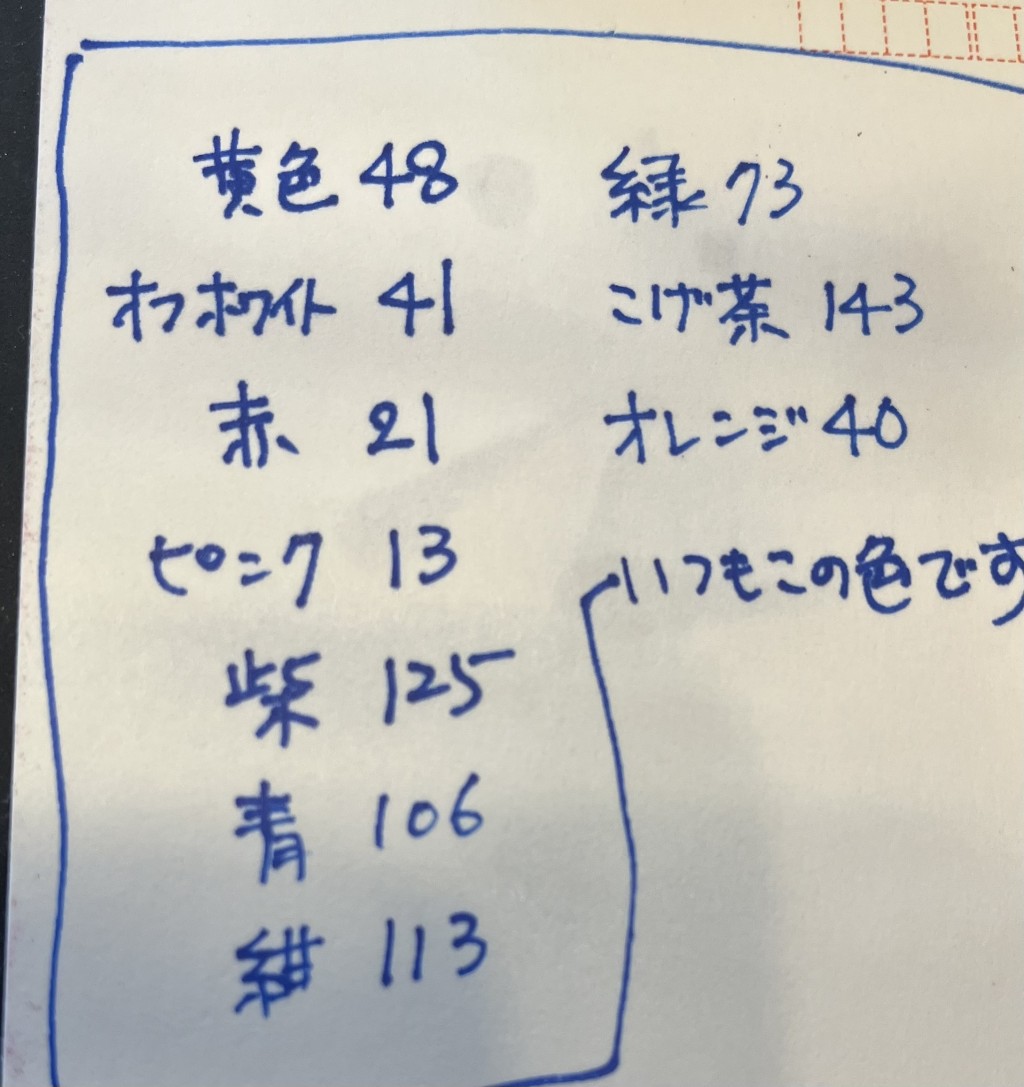 黄色 48
オフホワイト 41
赤 21
ピンク 13
柴 125
青 106
紺 113
緑 73
こげ茶 143
オレンジ 40
いつもこの色です